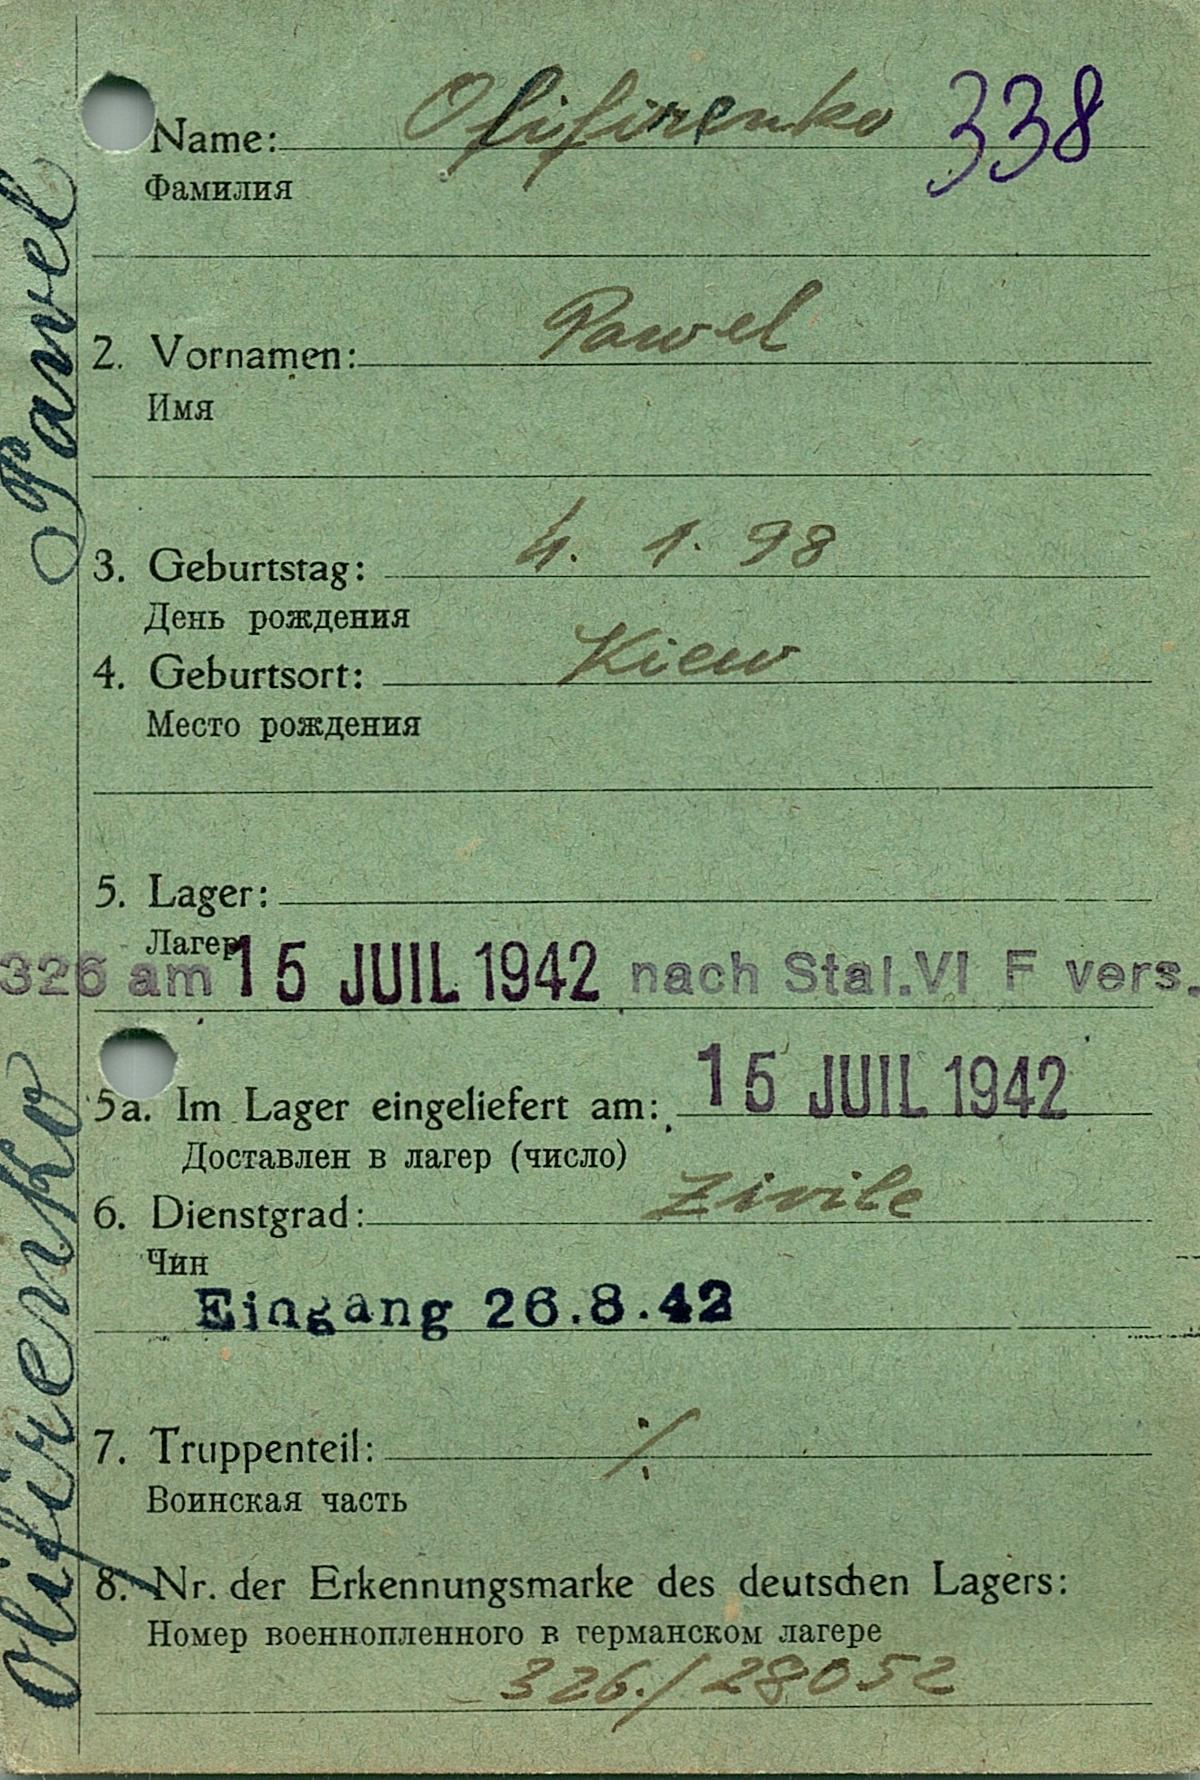 Name: Olifirenko 338
Фамилия
2. Vornamen: Pawel
Имя
3. Geburtstag: 4. 1. 98
День рождения
4. Geburtsort: Kiew
Место рождения
5. Lager:
Лагер
326 am 15 JUIL 1942 nach Stal.VI F vers.
5a. Im Lager eingeliefert am: 15 JUIL 1942
Доставлен в лагер (число)
6. Dienstgrad: Zivile
Чин
Eingang 26.8.42
7. Truppenteil: ·/.
Воинская часть
8. Nr. der Erkennungsmarke des deutschen Lagers:
Номер военнопленного в германском лагере
326./28052
Olifirenko Pawel